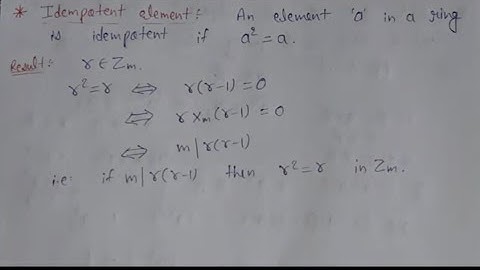 * Idempotent element:- An element 'a' in a ring
is idempotent if a² = a.
Result:- r ∈ Zm.
r² = r ⇔ r(r-1) = 0
⇔ r ×m (r-1) = 0
⇔ m | r(r-1)
i.e: if m | r(r-1) then r² = r in Zm.